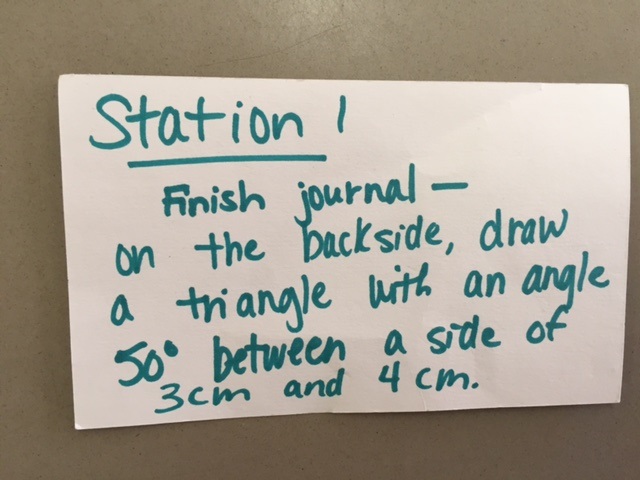 Station 1
Finish journal —
on the backside, draw
a triangle with an angle
50° between a side of
3cm and 4 cm.